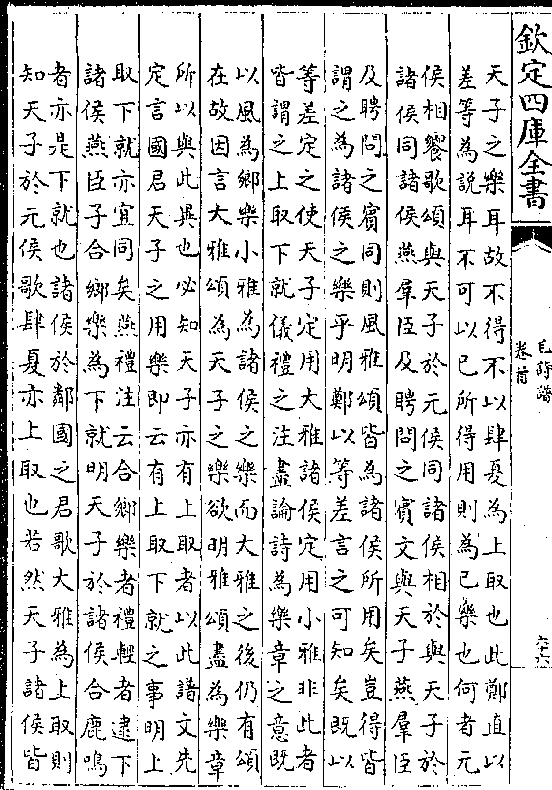 欽定四庫全書
毛詩譜
卷首
天子之樂耳故不得不以肆夏為上取也此鄭直以
差等為說耳不可以已所得用則為已樂也何者元
侯相饗歌頌與天子於元侯同諸侯相於與天子於
諸侯同諸侯燕羣臣及聘問之賓文與天子燕羣臣
及聘問之賓同則風雅頌皆為諸侯所用矣豈得皆
謂之為諸侯之樂乎明鄭以等差言之可知矣既以
等差定之使天子定用大雅諸侯定用小雅非此者
皆謂之上取下就儀禮之注盡論詩為樂章之意既
以風為鄉樂小雅為諸侯之樂而大雅之後仍有頌
在故因言大雅頌為天子之樂欲明雅頌盡為樂章
所以與此異也必知天子亦有上取者以此譜文先
定言國君天子之用樂即云有上取下就之事明上
取下就亦宜同矣燕禮注云合鄉樂者禮輕者逮下
諸侯燕臣子合鄉樂為下就明天子於諸侯合鹿鳴
者亦是下就也諸侯於鄰國之君歌大雅為上取則
知天子於元侯歌肆夏亦上取也若然天子諸侯皆